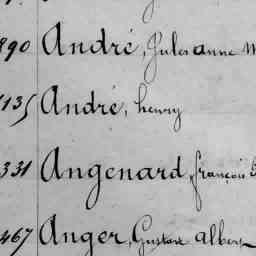 890 André, Jules anne M
135 André, henry
331 Angenard, françois
467 Anger, Gustave albert